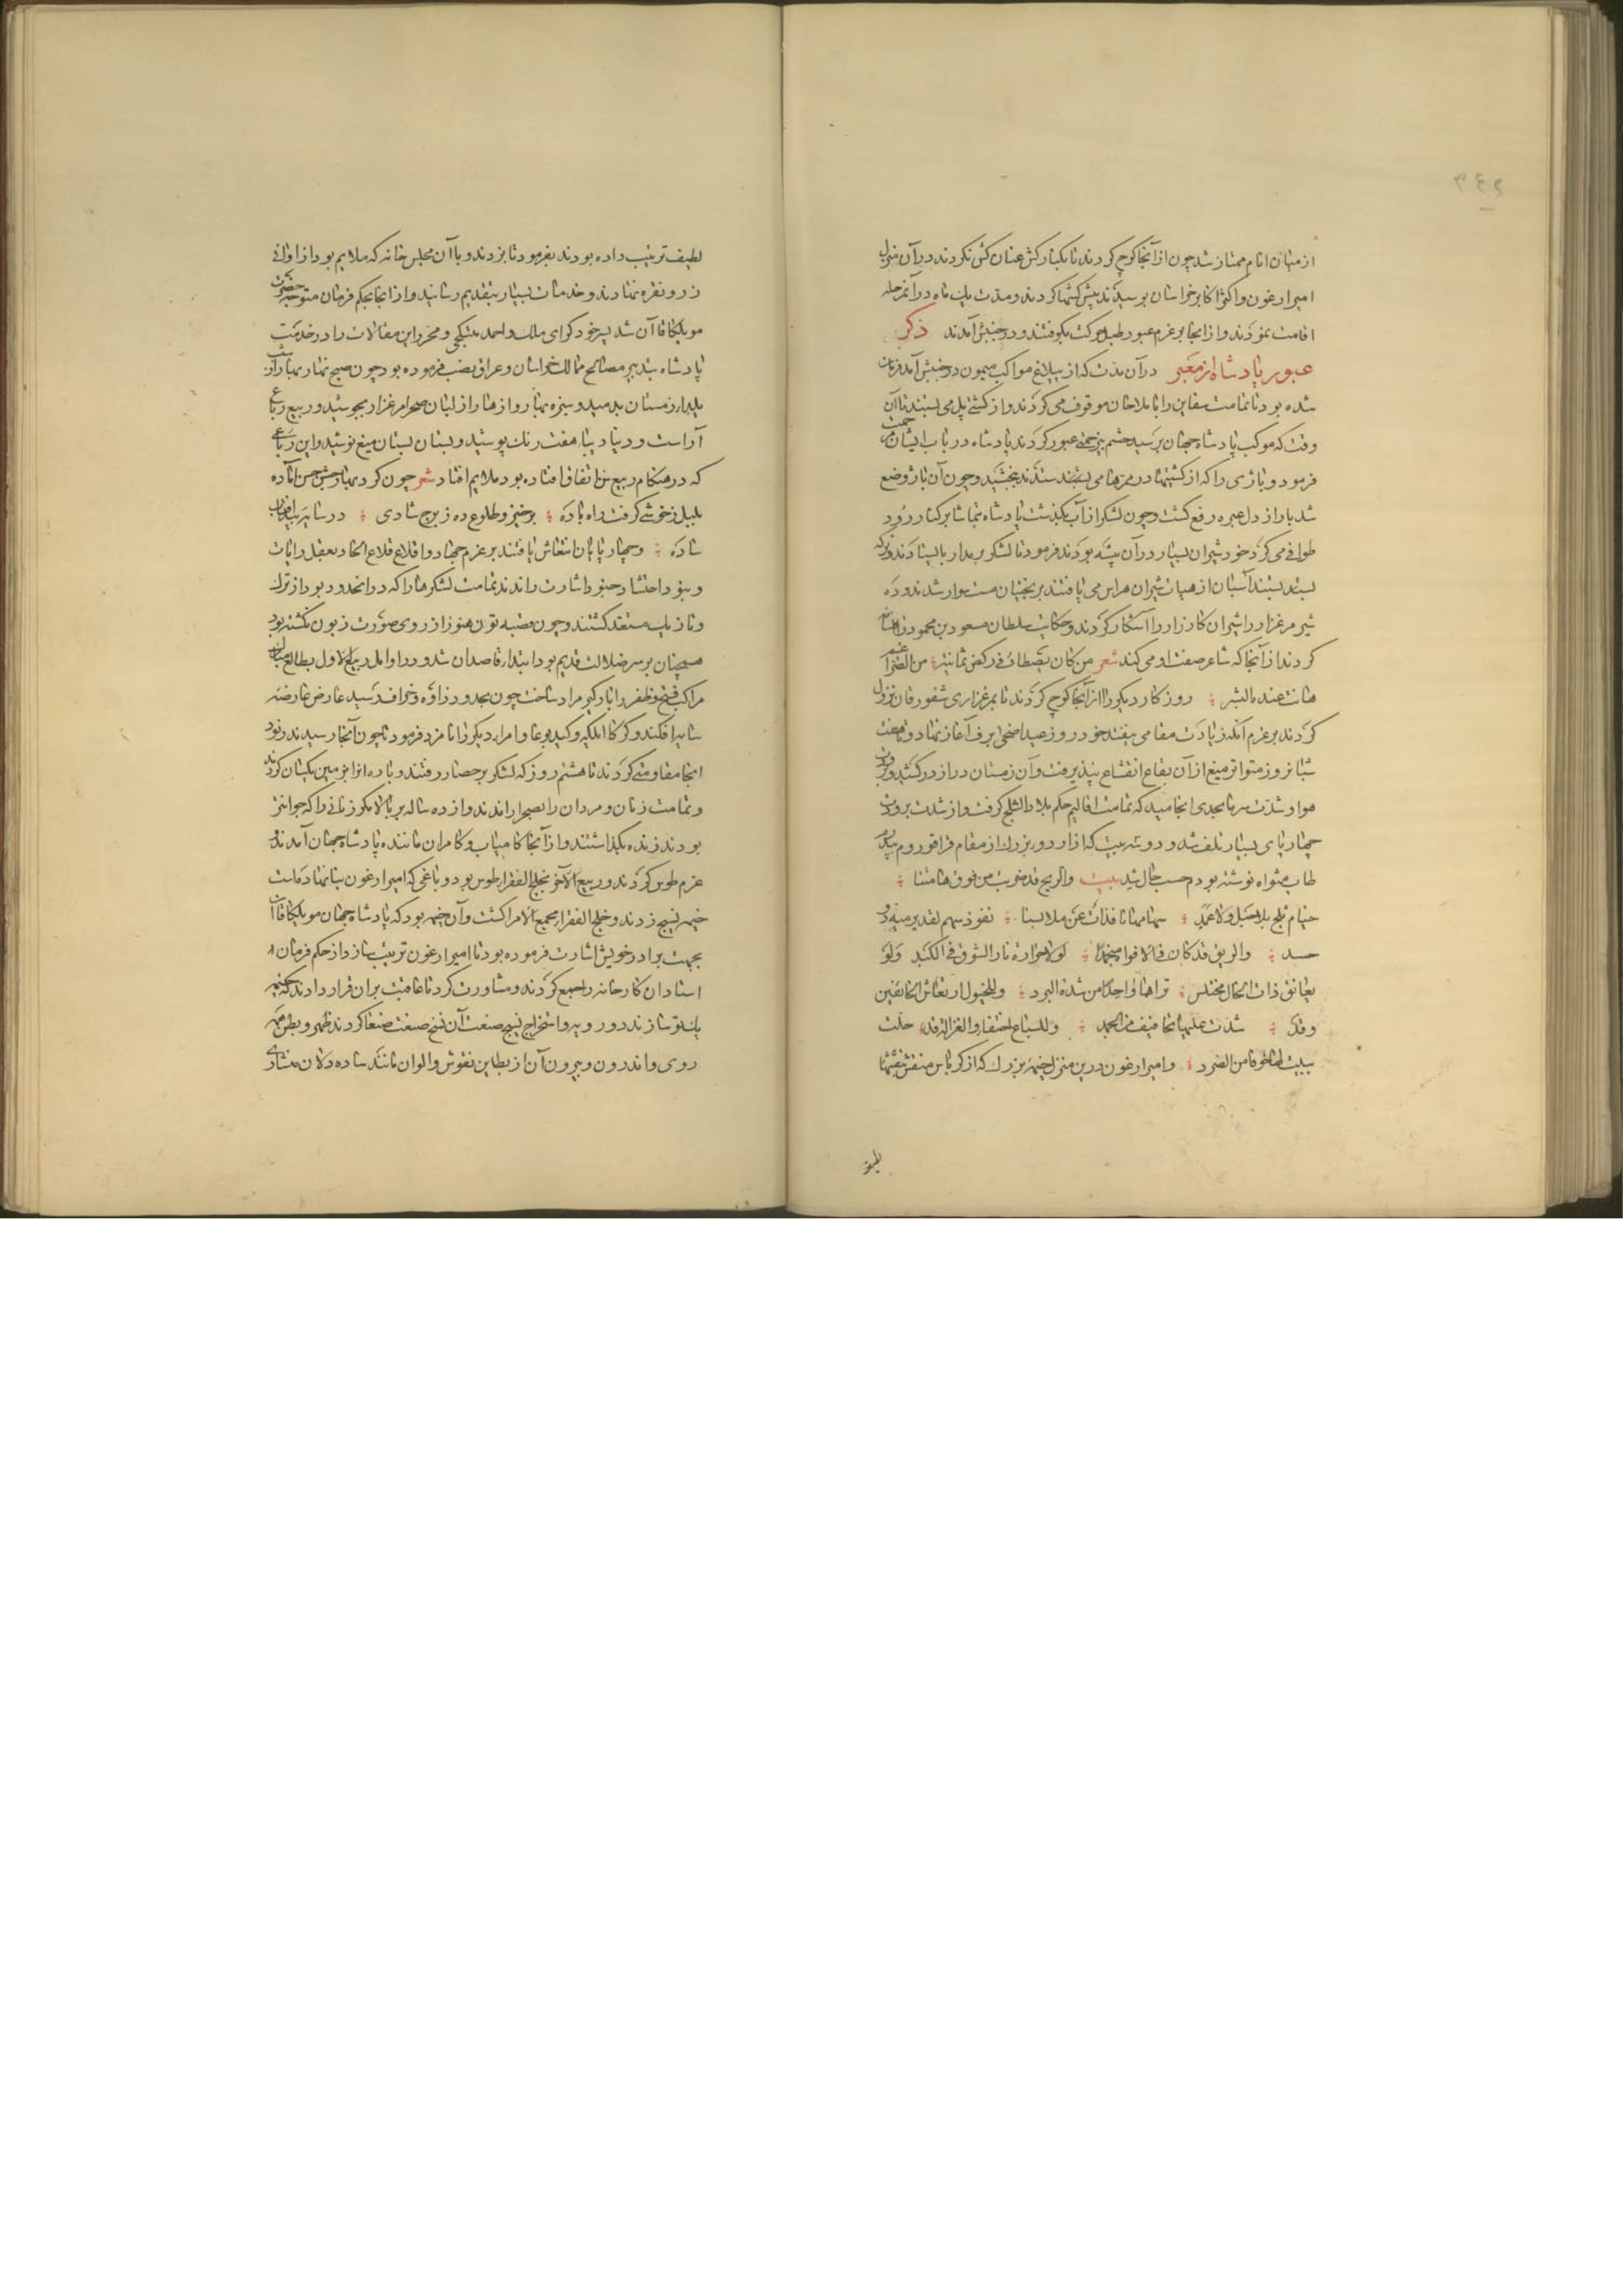 از میان انام ممتاز شد چون از آنجا کوچ کردند تا بکنار کش عنان کش نکردند در آن منزل
امیر ارغون و اکثر اکابر خراسان برسیدند پیش کشها کردند و مدت یک ماه در آن مرحله
اقامت نمودند و از آنجا بر عزم عبور طبل حرکت بکوفتند و در جنبش آمدند ذکر
عبور پادشاه از معبر در آن مدت که از ییلاغ مواکب میمون در جنبش آمد فرمان
شده بود تا تمامت سفاین را با ملاحان موقوف می کردند و از کشتی پل می بستند تا آن
وقت که موکب پادشاه جهان برسید حشم بی زحمتی عبور کردند پادشاه در باب ایشان مرحمت
فرمود و باژی را که از کشتیها در ممرها می ستدند ببخشید و چون آن باژ وضع
شد بار از دل عبره رفع گشت و چون لشکر از آب بگذشت پادشاه تماشا بر کنار رود
طوافی می کرد خود شیران بسیار در آن بیشه بودند فرمود تا لشکر بر مدار بایستادند و نرکه
بستند اسبان از هیات شیران هراس می یافتند بر بختیان مست سوار شدند و ده
شیر مرغزار را شیران کارزار را آشکار کردند و حکایت سلطان مسعود بن محمود
کردند از آنجا که شاعر صفت او می کند شعر من کان یصطاد فی رکض ثمانیة من الضراغم
هانت عنده البشر روز کار دیگر را از آنجا کوچ کردند تا بمرغزاری شفورقان نزول
کردند بر عزم آنکه زیادت مقامی نیفتد خود روز عید اضحی برف آغاز نهاد و تا هفت
شبانروز متواتر میغ از آن بقاع انقشاع نپذیرفت و آن زمستان دراز در کشید و برودت
هوا و شدت سرما بحدی انجامید که تمامت اقالیم حکم بلاد الثلج گرفت و از شدت برودت
چهارپای بسیار تلف شد و دو سه بیت که از اردو بزرگ از مقام قراقوروم بپدر
طاب مثواه نوشته بودم حسب حال شد بیت والریح قد ضربت من فوق هامتنا
خیام ثلج بلا حبل ولا عمد سهامها نافذات عن ملابسنا نفوذ سهم لقد یرمیه ذو
حسد والریق قد کان فی الافواه منجمدا لولا حرارة نار الشوق فی الکبد ولو
یعانق ذات الخال مختلس تراهما واحدا من شدة البرد وللخیول ارتعاش الخائفین
وقد شدت علیها تخافیف من الجمد وللسباع اختفار والغزالة قد حلت
ببیت لها خوفا من الصرد و امیر ارغون درین منزل خیمه بزرگ که از کرباس منقش
لطیف
لطیف ترتیب داده بودند بفرمود تا بزدند و با آن مجلس خانه که ملایم بود از اوانی
زر و نقره نهادند و خدمات بسیار بتقدیم رسانید و از آنجا بحکم فرمان متوجه حضرت
مونککا قاآن شد پسر خود کرای ملک و احمد بیتکچی و محرر این مقالات را در خدمت
پادشاه بتدبیر مصالح ممالک خراسان و عراق نصب فرموده بود چون صبح نهار بهار از شب
یلدا زمستان بدمید و سبزه بهار و ازهار از لبان صحرا مرغزار بجوشید و ربیع رباع
آراست و دنیا دیباء هفت رنگ پوشید و بستان بستان میغ نوشید و این رباع
که در هنگام ربیع اتفاق افتاده بود ملایم افتاد شعر چون کرد بهار جشن حسن آماده
بلبل ز خوشی گرفت راه باده برخیز و طلوع ده ز برج شادی در سایه بید آفتاب
ساده و چهارپایان انتعاش یافتند بر عزم جهاد و اقلاع قلاع الحاد بعقد رایات
و بنود و احتشاد جنود اشارت راندند تمامت لشکرها را که در آن حدود بود از ترک
و تازیک مستعد گشتند و چون قصبه تون هنوز از روی صورت زبون نگشته بود
همچنان بر سر ضلالت قدیم بود ابتدا قاصد آن شد و در اوایل ربیع الاول بطالع میمون
مراکب فتح و ظفر را بارگیر مراد ساخت چون بحدود زاوه و خواف رسید عارض عارضه
سایه افکند و کوکا ایلکه و کید بوغا و امراء دیگر را نامزد فرمود تا چون آنجا رسیدند رنود
آنجا مقاومتی کردند تا هشتم روز که لشکر بر حصار رفتند و باره آن را بزمین یکسان کردند
و تمامت زنان و مردان را بصحرا راندند و از ده ساله بر بالا مگر زنانی را که جوانتر
بودند زنده بگذاشتند و از آنجا کامیاب و کامران با بنده پادشاه جهان آمدند و
عزم طوس کردند و ربیع الآخر بنجلج الفقراء طوس بود و باغی که امیر ارغون بنا نهادست
خیمه نسیج زدند و خلج الفقرا مجمع الامرا گشت و آن خیمه بود که پادشاه جهان مونککا قاآن
بجهت برادر خویش اشارت فرموده بود تا امیر ارغون ترتیب سازد از حکم فرمان او
استادان کارخانه را جمع کردند و مشاورت کرد تا عاقبت بر آن قرار دادند که خیمه
یک تو سازند دو رویه و استخراج نسیج صنعت آن نسخ صنعت صنعا کردند ظهر و بطن همه
روی و اندرون و بیرون آن از تطابق نقوش و الوان مانند ساده دلان متساوی